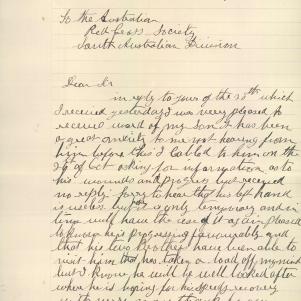 To the Australian
Red Cross Society
South Australian Division
Dear Sir
in reply to yours of the 20th which
I received yesterday I was very pleased to
receive word of my Son it has been
a great anxiety to me not hearing from
him before this I Cabled to him on the
26 of Oct asking for information as to
his wounds and progress but received
no reply Sorry to hear that his left hand
is useless but is only temporary and in
time will have the use of it again pleased
to know he is progressing favourably and
that his two Brothers have been able to
visit him that has taken a load off my mind
but I know he will be well looked after
where he is hoping for his speedy recovery